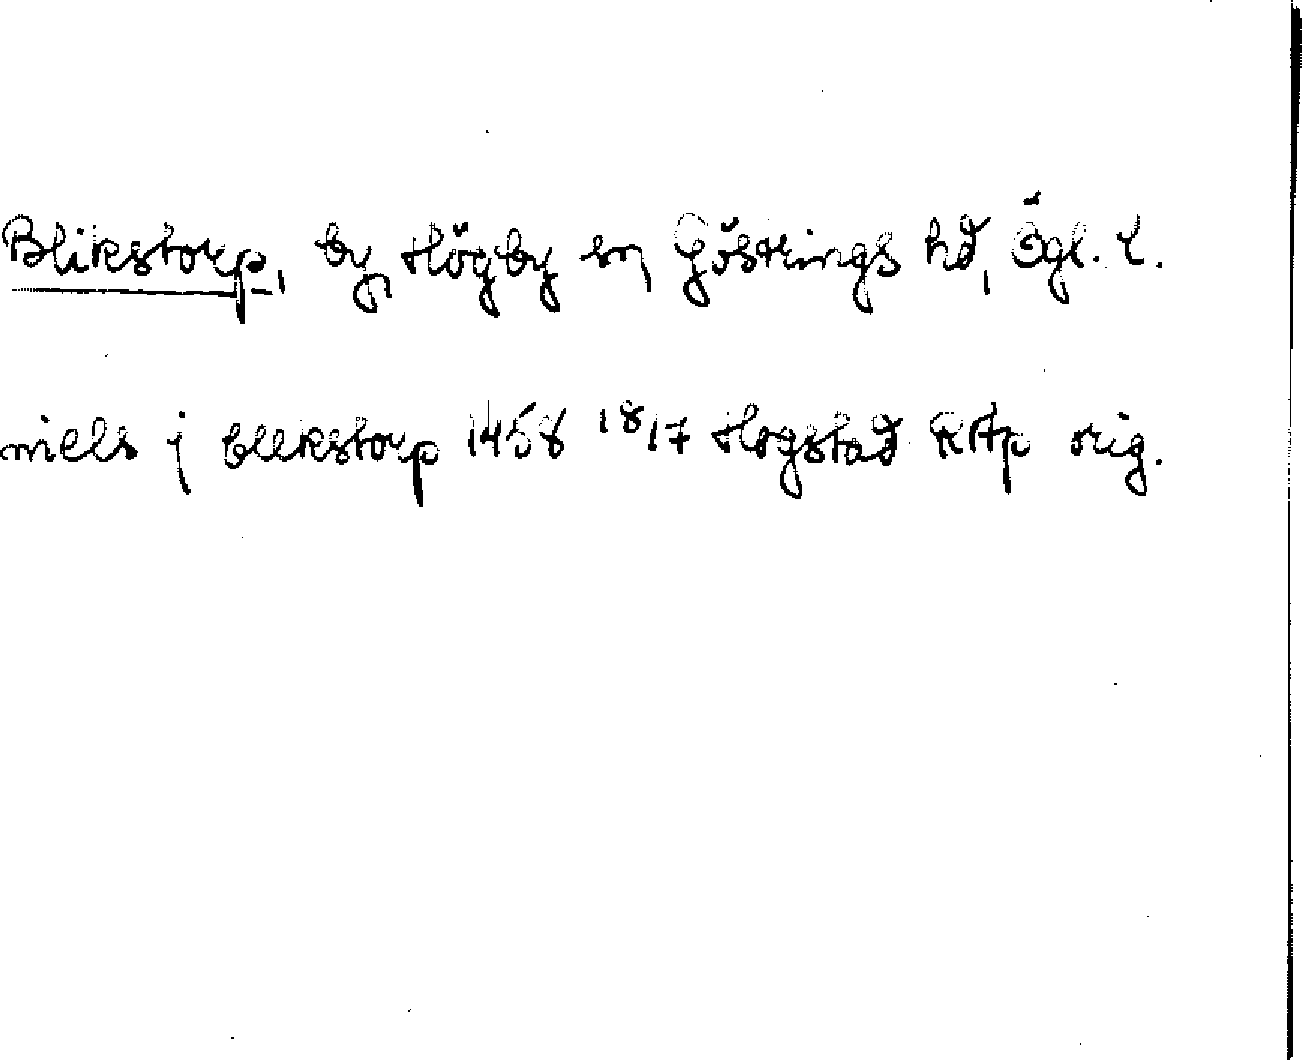 Blikstorp, by, Högby sn, Göstrings hd, Ögl. l.
niels j blekstorp 1458 18/7 Hogstad RAp orig.